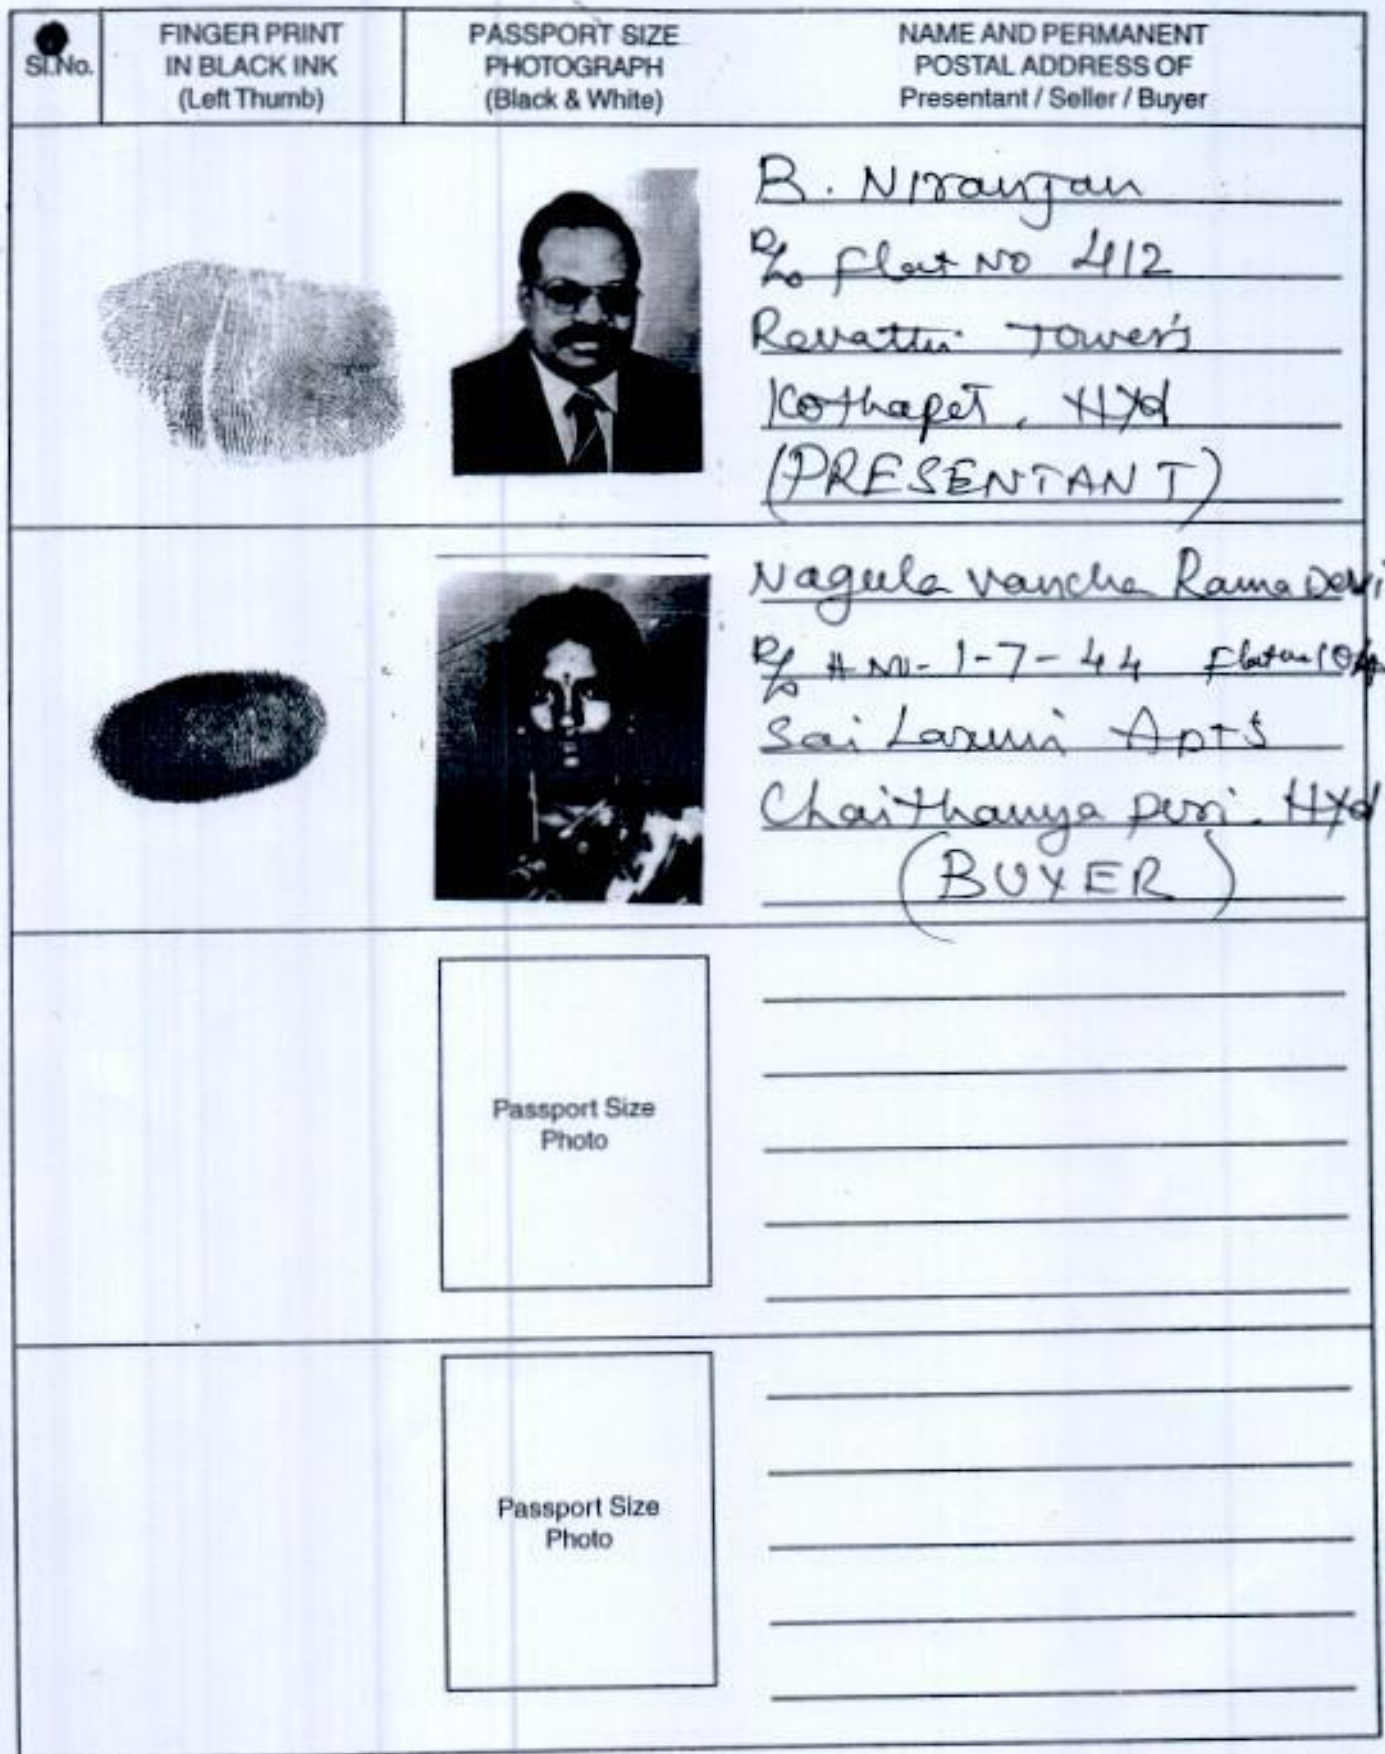 Sl.No.
FINGER PRINT
IN BLACK INK
(Left Thumb)
PASSPORT SIZE
PHOTOGRAPH
(Black & White)
NAME AND PERMANENT
POSTAL ADDRESS OF
Presentant / Seller / Buyer
B. Niranjan
R/o Flat No 412
Revathi Tower's
Kothapet, HYd
(PRESENTANT)
Nagula vancha Rama Devi
R/o H No- 1-7-44
Sai Laxmi Apts
Chaithanya puri. HYd
(BUYER)
Passport Size
Photo
Passport Size
Photo